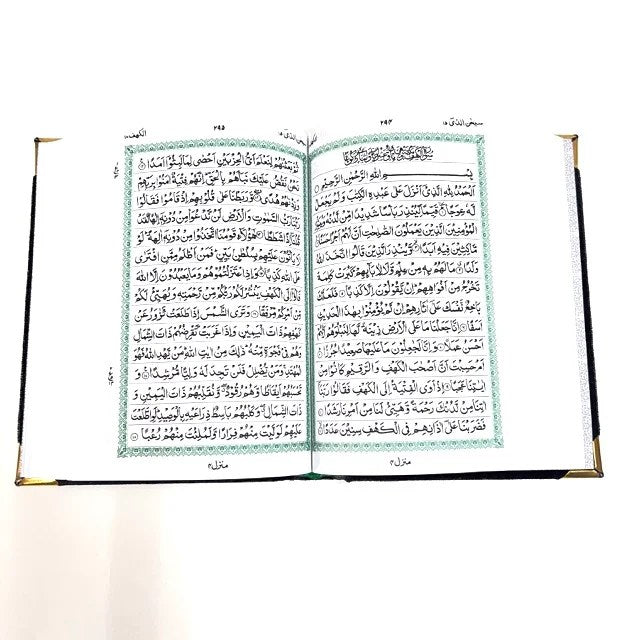 سبحن الذی ١٥
٢٩٤
بِسْمِ اللهِ الرَّحْمٰنِ الرَّحِيْمِ
اَلْحَمْدُ لِلّٰهِ الَّذِيْٓ اَنْزَلَ عَلٰى عَبْدِهِ الْكِتٰبَ وَلَمْ يَجْعَلْ
لَّهٗ عِوَجًا ۝ قَيِّمًا لِّيُنْذِرَ بَاْسًا شَدِيْدًا مِّنْ لَّدُنْهُ وَيُبَشِّرَ
الْمُؤْمِنِيْنَ الَّذِيْنَ يَعْمَلُوْنَ الصّٰلِحٰتِ اَنَّ لَهُمْ اَجْرًا حَسَنًا ۝
مَّاكِثِيْنَ فِيْهِ اَبَدًا ۝ وَّيُنْذِرَ الَّذِيْنَ قَالُوا اتَّخَذَ اللهُ
وَلَدًا ۝ مَا لَهُمْ بِهٖ مِنْ عِلْمٍ وَّلَا لِاٰبَآئِهِمْ كَبُرَتْ كَلِمَةً
تَخْرُجُ مِنْ اَفْوَاهِهِمْ اِنْ يَّقُوْلُوْنَ اِلَّا كَذِبًا ۝ فَلَعَلَّكَ
بَاخِعٌ نَّفْسَكَ عَلٰٓى اٰثَارِهِمْ اِنْ لَّمْ يُؤْمِنُوْا بِهٰذَا الْحَدِيْثِ
اَسَفًا ۝ اِنَّا جَعَلْنَا مَا عَلَى الْاَرْضِ زِيْنَةً لَّهَا لِنَبْلُوَهُمْ اَيُّهُمْ
اَحْسَنُ عَمَلًا ۝ وَاِنَّا لَجٰعِلُوْنَ مَا عَلَيْهَا صَعِيْدًا جُرُزًا ۝
اَمْ حَسِبْتَ اَنَّ اَصْحٰبَ الْكَهْفِ وَالرَّقِيْمِ كَانُوْا مِنْ
اٰيٰتِنَا عَجَبًا ۝ اِذْ اَوَى الْفِتْيَةُ اِلَى الْكَهْفِ فَقَالُوْا رَبَّنَآ
اٰتِنَا مِنْ لَّدُنْكَ رَحْمَةً وَّهَيِّئْ لَنَا مِنْ اَمْرِنَا رَشَدًا ۝
فَضَرَبْنَا عَلٰٓى اٰذَانِهِمْ فِي الْكَهْفِ سِنِيْنَ عَدَدًا ۝
منزل ٤
٢٩٥
الكهف ١٨
ثُمَّ بَعَثْنٰهُمْ لِنَعْلَمَ اَيُّ الْحِزْبَيْنِ اَحْصٰى لِمَا لَبِثُوْٓا اَمَدًا ۝
نَحْنُ نَقُصُّ عَلَيْكَ نَبَاَهُمْ بِالْحَقِّ اِنَّهُمْ فِتْيَةٌ اٰمَنُوْا بِرَبِّهِمْ
وَزِدْنٰهُمْ هُدًى ۝ وَّرَبَطْنَا عَلٰى قُلُوْبِهِمْ اِذْ قَامُوْا فَقَالُوْا
رَبُّنَا رَبُّ السَّمٰوٰتِ وَالْاَرْضِ لَنْ نَّدْعُوَا۟ مِنْ دُوْنِهٖٓ اِلٰهًا لَّقَدْ
قُلْنَآ اِذًا شَطَطًا ۝ هٰٓؤُلَآءِ قَوْمُنَا اتَّخَذُوْا مِنْ دُوْنِهٖٓ اٰلِهَةً لَوْلَا
يَاْتُوْنَ عَلَيْهِمْ بِسُلْطٰنٍ بَيِّنٍ فَمَنْ اَظْلَمُ مِمَّنِ افْتَرٰى
عَلَى اللهِ كَذِبًا ۝ وَاِذِ اعْتَزَلْتُمُوْهُمْ وَمَا يَعْبُدُوْنَ اِلَّا اللهَ
فَاْوٗٓا اِلَى الْكَهْفِ يَنْشُرْ لَكُمْ رَبُّكُمْ مِّنْ رَّحْمَتِهٖ وَيُهَيِّئْ لَكُمْ
مِّنْ اَمْرِكُمْ مِّرْفَقًا ۝ وَتَرَى الشَّمْسَ اِذَا طَلَعَتْ تَّزٰوَرُ عَنْ
كَهْفِهِمْ ذَاتَ الْيَمِيْنِ وَاِذَا غَرَبَتْ تَّقْرِضُهُمْ ذَاتَ الشِّمَالِ
وَهُمْ فِيْ فَجْوَةٍ مِّنْهُ ذٰلِكَ مِنْ اٰيٰتِ اللهِ مَنْ يَّهْدِ اللهُ فَهُوَ
الْمُهْتَدِ وَمَنْ يُّضْلِلْ فَلَنْ تَجِدَ لَهٗ وَلِيًّا مُّرْشِدًا ۝
وَتَحْسَبُهُمْ اَيْقَاظًا وَّهُمْ رُقُوْدٌ وَّنُقَلِّبُهُمْ ذَاتَ الْيَمِيْنِ وَ
ذَاتَ الشِّمَالِ وَكَلْبُهُمْ بَاسِطٌ ذِرَاعَيْهِ بِالْوَصِيْدِ لَوِ اطَّلَعْتَ
عَلَيْهِمْ لَوَلَّيْتَ مِنْهُمْ فِرَارًا وَّلَمُلِئْتَ مِنْهُمْ رُعْبًا ۝
منزل ٤